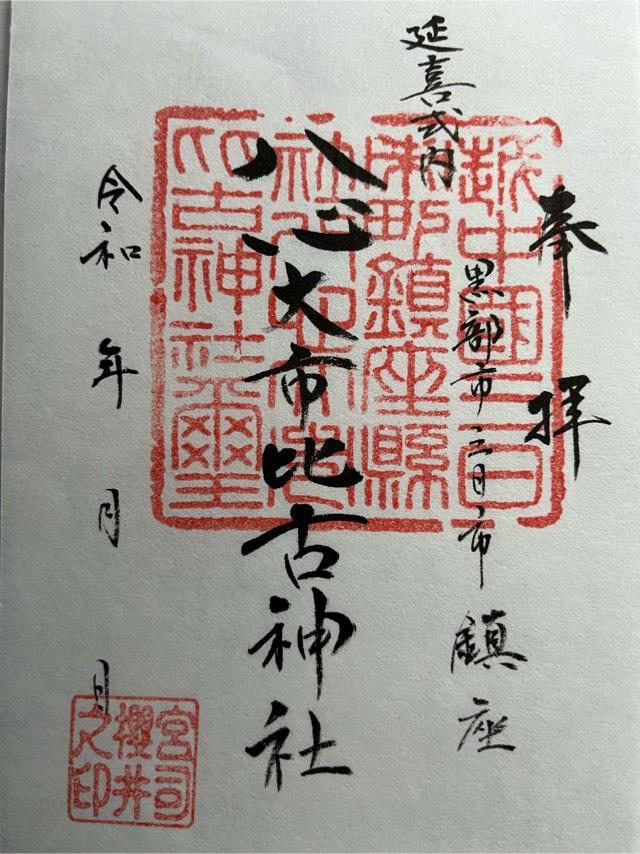 奉拝
延喜式内
黒部市三日市鎮座
八心大市比古神社
令和 年 月 日
越中國三日
鎮座縣
比古神社璽
宮司
櫻井
之印